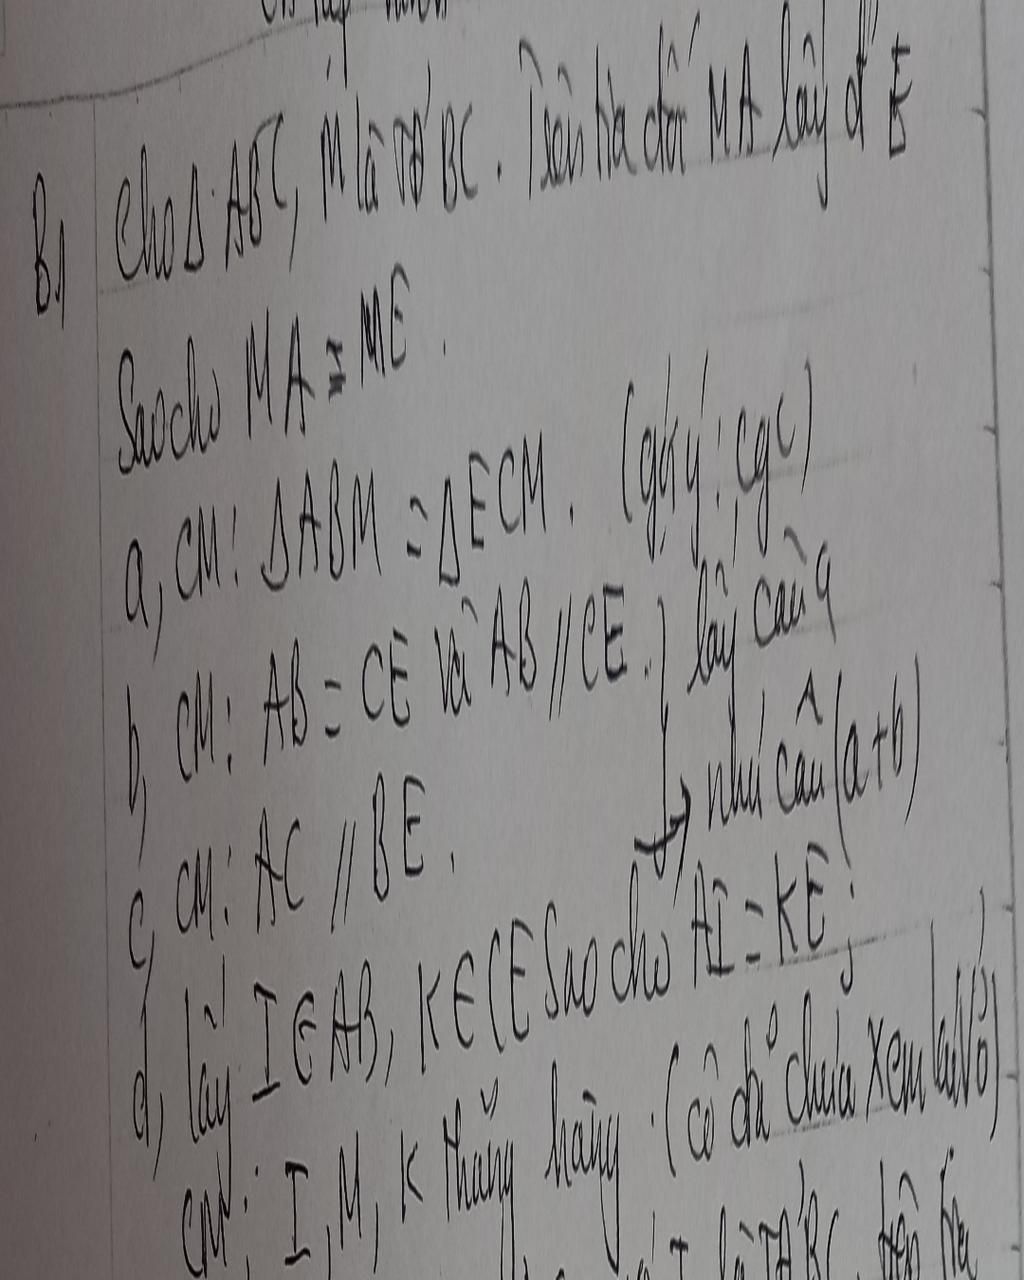 B1 Cho Δ ABC, M là TĐ BC. Trên tia đối MA lấy đ' E
Sao cho MA = ME.
a, CM: ΔABM = ΔECM. (gợi ý: cgc)
b, CM: AB = CE và AB // CE.
c, CM: AC // BE. như câu (a+b)
d, lấy I ∈ AB, K ∈ CE Sao cho AI = KE.
CM: I, M, K thẳng hàng. (cô đã chữa xem lại Vở)
là TĐ BC. trên tia